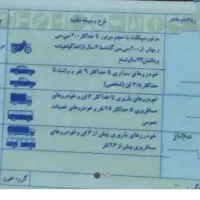 نوع وسیله نقلیه
موتورسیکلت با حجم موتور تا حداکثر ۲۰۰ سی سی
و بیش از ۲۰۰ سی سی گذشت ۲ سال از اخذ گواهینامه
خودروهای سواری تا حداکثر ۹ نفر و وانت تا
حداکثر ۳/۵ تن (شخصی)
خودروهای باربری تا حداکثر ۶ تن و خودروهای
مسافربری تا حداکثر ۲۶ نفر و خودروهای خدمات
عمومی
خودروهای باربری بیش از ۶ تن و خودروهای
مسافربری بیش از ۲۶ نفر
مجاز
گروه خون